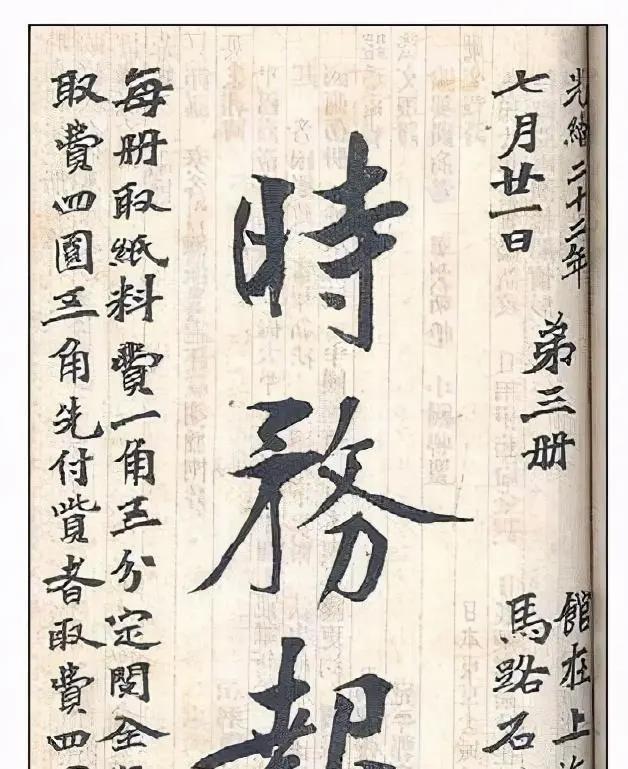 光緒二十二年
七月廿一日
第三册
館在上
馬路石
時務報
每册取紙料費一角五分定閱全
取費四圓五角先付貲者取費四